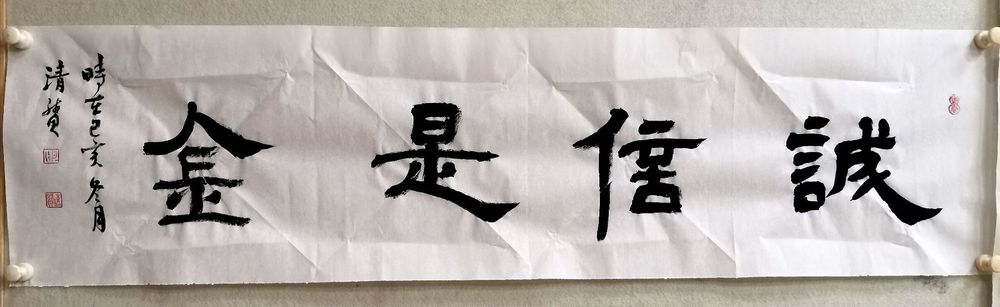 誠信是金
時在己亥冬月
清贊